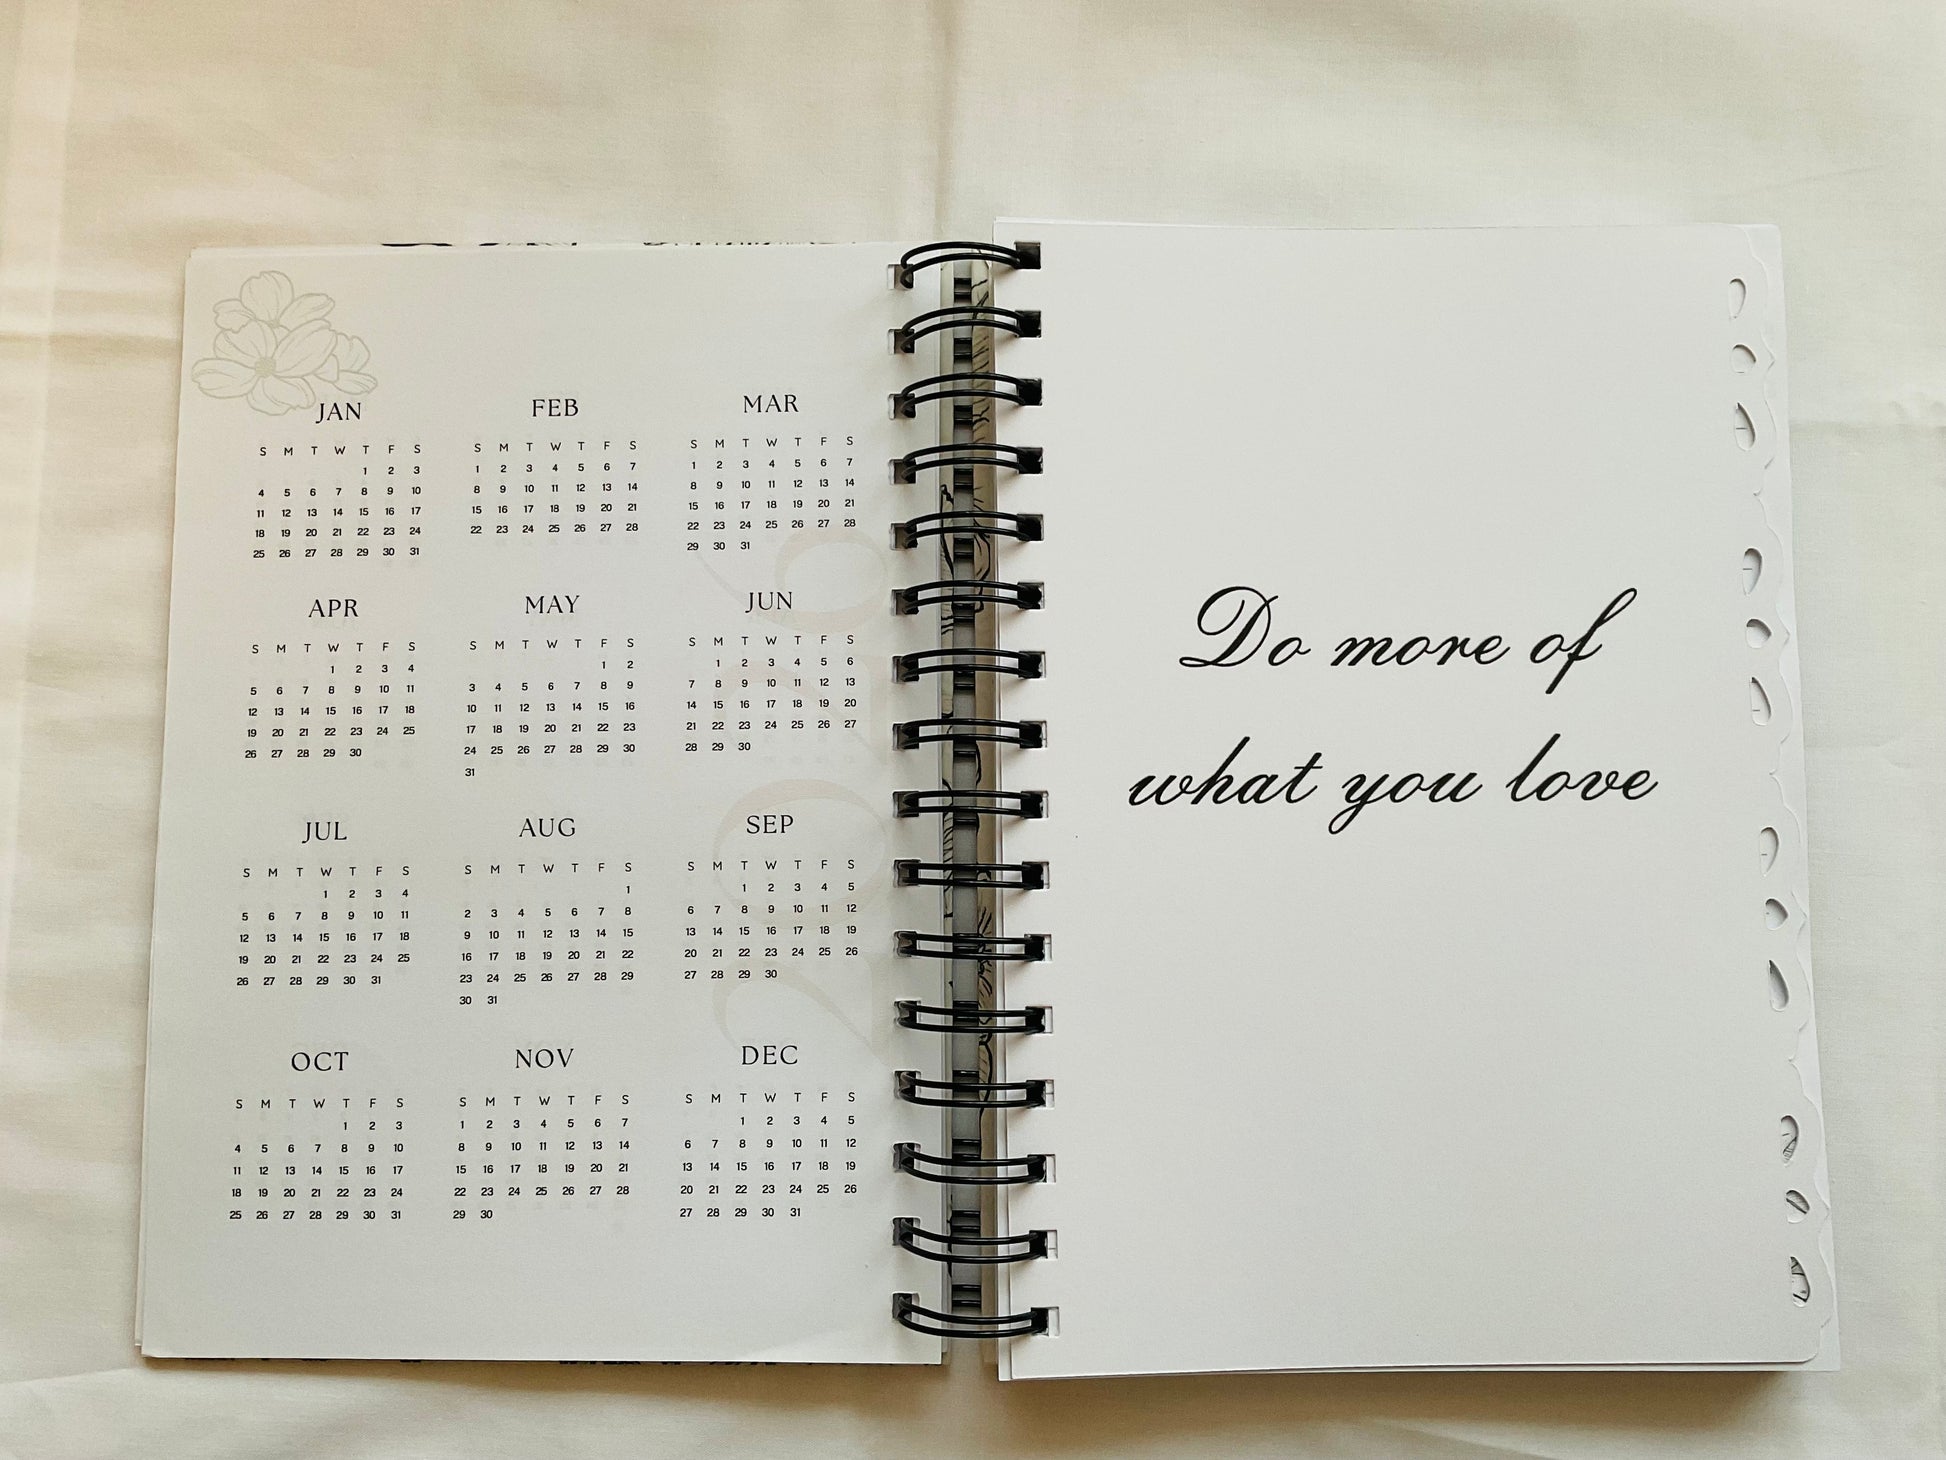 JAN
S M T W T F S
1 2 3
4 5 6 7 8 9 10
11 12 13 14 15 16 17
18 19 20 21 22 23 24
25 26 27 28 29 30 31
FEB
S M T W T F S
1 2 3 4 5 6 7
8 9 10 11 12 13 14
15 16 17 18 19 20 21
22 23 24 25 26 27 28
MAR
S M T W T F S
1 2 3 4 5 6 7
8 9 10 11 12 13 14
15 16 17 18 19 20 21
22 23 24 25 26 27 28
29 30 31
APR
S M T W T F S
1 2 3 4
5 6 7 8 9 10 11
12 13 14 15 16 17 18
19 20 21 22 23 24 25
26 27 28 29 30
MAY
S M T W T F S
1 2
3 4 5 6 7 8 9
10 11 12 13 14 15 16
17 18 19 20 21 22 23
24 25 26 27 28 29 30
31
JUN
S M T W T F S
1 2 3 4 5 6
7 8 9 10 11 12 13
14 15 16 17 18 19 20
21 22 23 24 25 26 27
28 29 30
JUL
S M T W T F S
1 2 3 4
5 6 7 8 9 10 11
12 13 14 15 16 17 18
19 20 21 22 23 24 25
26 27 28 29 30 31
AUG
S M T W T F S
1
2 3 4 5 6 7 8
9 10 11 12 13 14 15
16 17 18 19 20 21 22
23 24 25 26 27 28 29
30 31
SEP
S M T W T F S
1 2 3 4 5
6 7 8 9 10 11 12
13 14 15 16 17 18 19
20 21 22 23 24 25 26
27 28 29 30
OCT
S M T W T F S
1 2 3
4 5 6 7 8 9 10
11 12 13 14 15 16 17
18 19 20 21 22 23 24
25 26 27 28 29 30 31
NOV
S M T W T F S
1 2 3 4 5 6 7
8 9 10 11 12 13 14
15 16 17 18 19 20 21
22 23 24 25 26 27 28
29 30
DEC
S M T W T F S
1 2 3 4 5
6 7 8 9 10 11 12
13 14 15 16 17 18 19
20 21 22 23 24 25 26
27 28 29 30 31
2026
Do more of
what you love